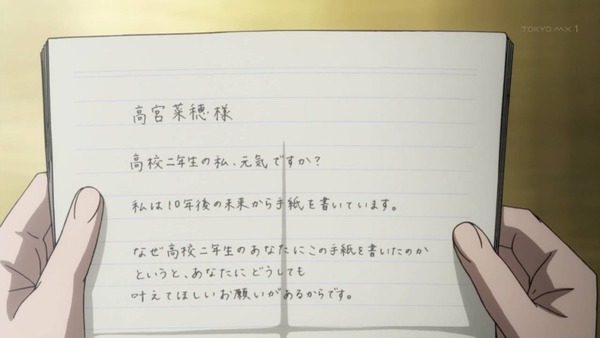 TOKYO MX 1
高宮菜穂様
高校二年生の私、元気ですか?
私は10年後の未来から手紙を書いています。
なぜ高校二年生のあなたにこの手紙を書いたのか
というと、あなたにどうしても
叶えてほしいお願いがあるからです。